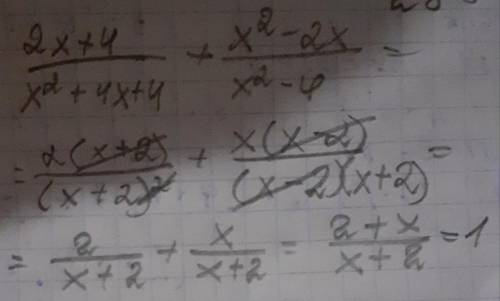 (2x+4)/(x²+4x+4) + (x²-2x)/(x²-4) =
= 2(x+2)/(x+2)² + x(x-2)/(x-2)(x+2) =
= 2/(x+2) + x/(x+2) = (2+x)/(x+2) = 1